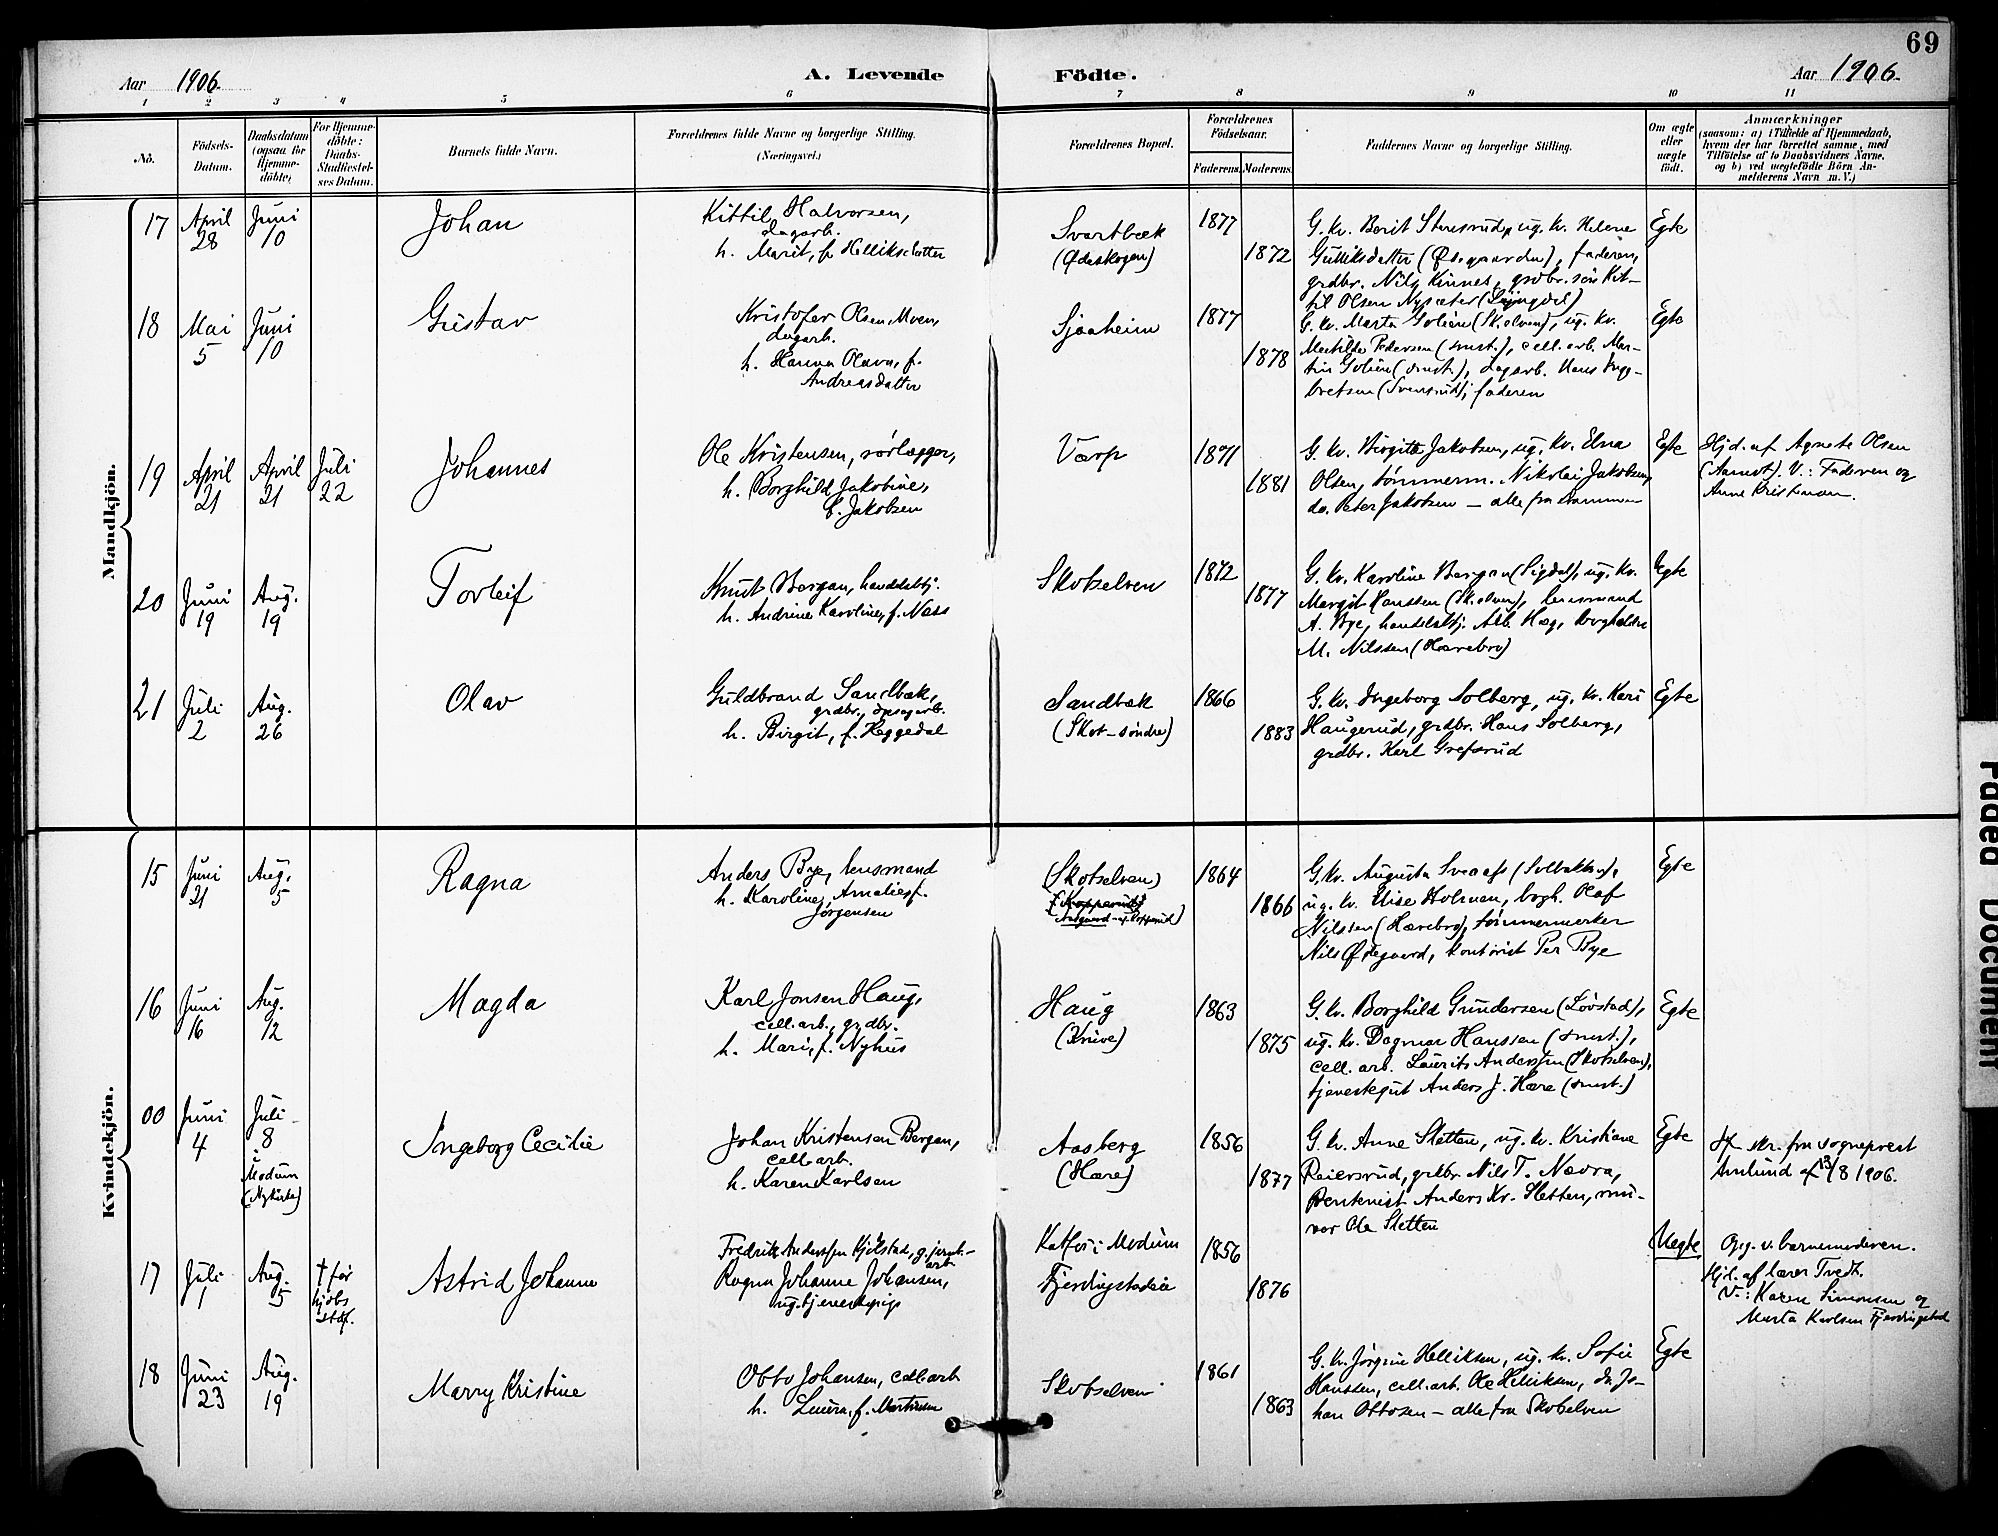 69
Aar 1906. A. Levende Födte. Aar 1906.
1 2 3 4 5 6 7 8 9 10 11
No.
Födsels-
Datum.
Daabsdatum
(ogsaa for
Hjemme-
döbte)
For Hjemme-
döbte:
Daabs-
Stadfæstel-
ses Datum.
Barnets fulde Navn.
Forældrenes fulde Navne og borgerlige Stilling.
(Næringsvei.)
Forældrenes Bopæl.
Forældrenes
Födselsaar.
Faderens. Moderens.
Faddernes Navne og borgerlige Stilling.
Om ægte
eller
uægte
födt.
Anmærkninger
(saasom: a) i Tilfælde af Hjemmedaab,
hvem der har forrettet samme, med
Tilföielse af to Daabsvidners Navne,
og b) ved uægtefödte Börn An-
melderens Navn m. V.)
Mandkjön.
17 April 28 Juni 10 Johan
Kittil Halvorsen,
dagarb.
h. Marit, f. Helliksdatter
Svartbæk
(Ødeskogen)
1877
1872
G. kv. Berit Stensrud, ug. kv. Helene
Gulliksdatter (Øvregaarden), faderen,
grdbr. Nils Kinnes, grdbr. søn Kit-
til Olsen Nysæter (Lyngdal)
Egte
18 Mai 5 Juni 10 Gustav
Kristofer Olsen Moen,
dagarb.
h. Hanna Olava, f.
Andreasdatter
Sjaaheim
1877
1878
G. kv. Marta Golien (Sk.elven), ug. kv.
Mathilde Pedersen (smst.), cell. arb. Mar-
tin Golien (smst.), dagarb. Hans Ing-
bretsen (Svensrud), faderen
Egte
19 April 21 April 21 Juli 22 Johannes
Ole Kristensen, rørlægger,
h. Borghild Jakobine,
f. Jakobsen
Varp
1871
1881
G. kv. Birgitte Jakobsen, ug. kv. Elna
Olsen, tømmerm. Nikolai Jakobsen,
do. Peter Jakobsen — alle fra Drammen
Egte
Hjd. af Agnete Olsen
(Aamot). V.: Faderen og
Anne Kristiansen.
20 Juni 19 Aug. 19 Torleif
Knut Bergan, handelsbtj.
h. Andrine Karoline, f. Næss
Skotselven
1872
1877
G. kv. Karoline Bergan (Sigdal), ug. kv.
Margit Hanssen (Sk.elven), lensmand
A. Bye, handelsbtj. Alb. Hag, bogholder
M. Nilssen (Hærebro)
Egte
21 Juli 2 Aug. 26 Olav
Guldbrand Sandbæk,
grdbr., dagarb.
h. Birgit, f. Heggedal
Sandbæk
(Skot-søndre)
1866
1883
G. kv. Ingeborg Solberg, ug. kv. Kari
Haugerud, grdbr. Hans Solberg,
grdbr. Karl Grefsrud
Egte
Kvindekjön.
15 Juni 21 Aug. 5 Ragna
Anders Bye, lensmand
h. Karoline Amalie, f.
Jørgensen
(Skotselven)
1864
1866
G. kv. Augusta Sveaas (Solbakken),
ug. kv. Elise Holmen, bogh. Olaf
Nilssen (Hærebro), tømmermerker
Nils Ødegaard, kontorist Per Bye
Egte
16 Juni 16 Aug. 12 Magda
Karl Jonsen Haug,
cell. arb., grdbr.
h. Mari, f. Nyhus
Haug
(Kruve)
1863
1875
G. kv. Borghild Gundersen (Løvstad),
ug. kv. Dagmar Hanssen (smst.),
cell. arb. Laurits Anderssen (Skotselven),
tjenestegut Anders J. Hære (smst.)
Egte
00 Juni 4 Juli 8 i Modum (Nykirke) Ingeborg Cecilie
Johan Kristensen Bergan,
cell. arb.
h. Karen Karlsen
Aasberg
(Hære)
1856
1877
G. kv. Anne Sletten, ug. kv. Kristiane
Reiersrud, grdbr. Nils T. Nævra,
Rentenist Anders Kr. Sletten, mu-
rer Ole Sletten
Egte
skr. fra sogneprest
Amlund af 13/8 1906.
17 Juli 1 Aug. 5 † før hjdbs staf. Astrid Johanne
Fredrik Anderssen Kjølstad, g. jernb.-
arb.
Ragna Johanne Johansen,
ug. tjenestepige
Katfos i Modum
Fjerdingstadeie
1856
1876
Uegte
Opg. v. barnemoderen.
Hjd. af lærer Tvedt.
V.: Karen Simonsen og
Marta Karlsen Fjerdingstad
18 Juni 23 Aug. 19 Marry Kristine
Otto Johansen, cell. arb.
h. Laura, f. Martinsen
Skotselven
1861
1863
G. kv. Jørgine Helliksen, ug. kv. Sofie
Hanssen, cell. arb. Ole Helliksen, do. Jo-
han Ottosen — alle fra Skotselven
Egte
Faded Document